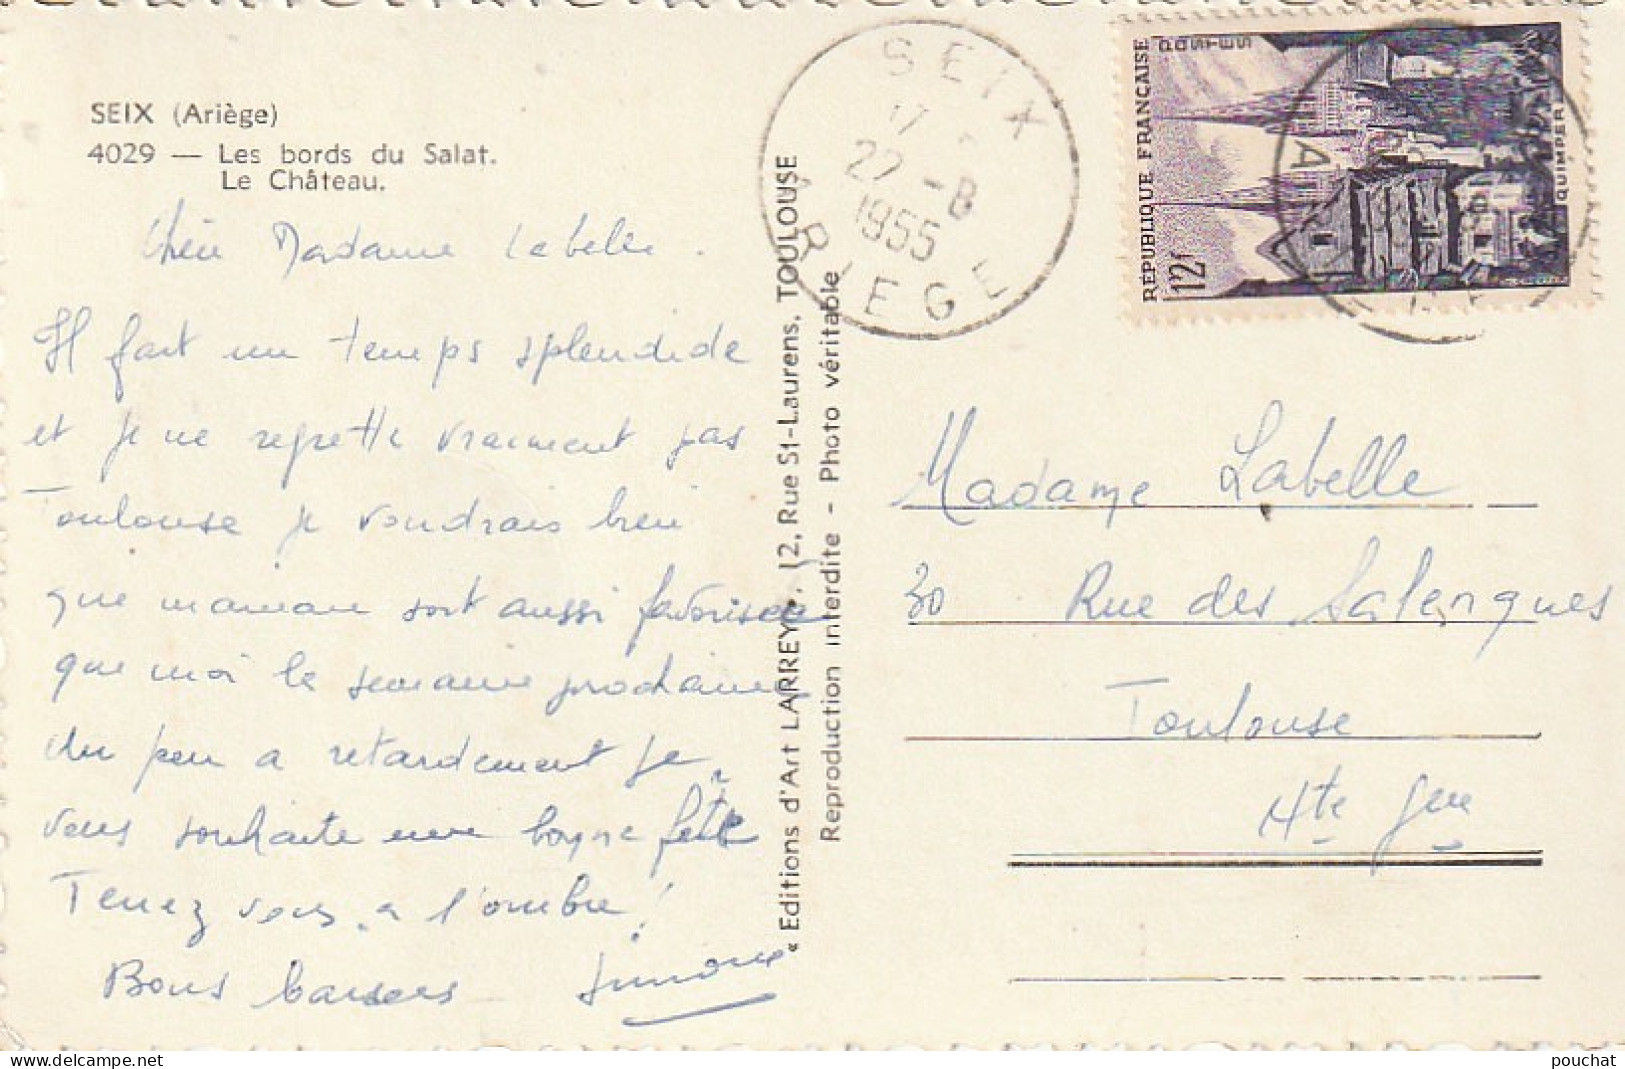 SEIX (Ariège)
4029 — Les bords du Salat.
Le Château.
Chère Madame Labelle.
Il fait un temps splendide
et je ne regrette vraiment pas
Toulouse je voudrais bien
que maman soit aussi favorisée
que moi la semaine prochaine
Un peu a retardement je
vous souhaite une bonne fête
Tenez vous a l'ombre!
Bons baisers Simone
« Editions d'Art LARREY », 12, Rue St-Laurens, TOULOUSE
Reproduction interdite - Photo véritable
SEIX
17
22 -8
1955
ARIEGE
RÉPUBLIQUE FRANÇAISE
POSTES
12f
QUIMPER
Madame Labelle
30 Rue des Salenques
Toulouse
Hte Gne
pouchat